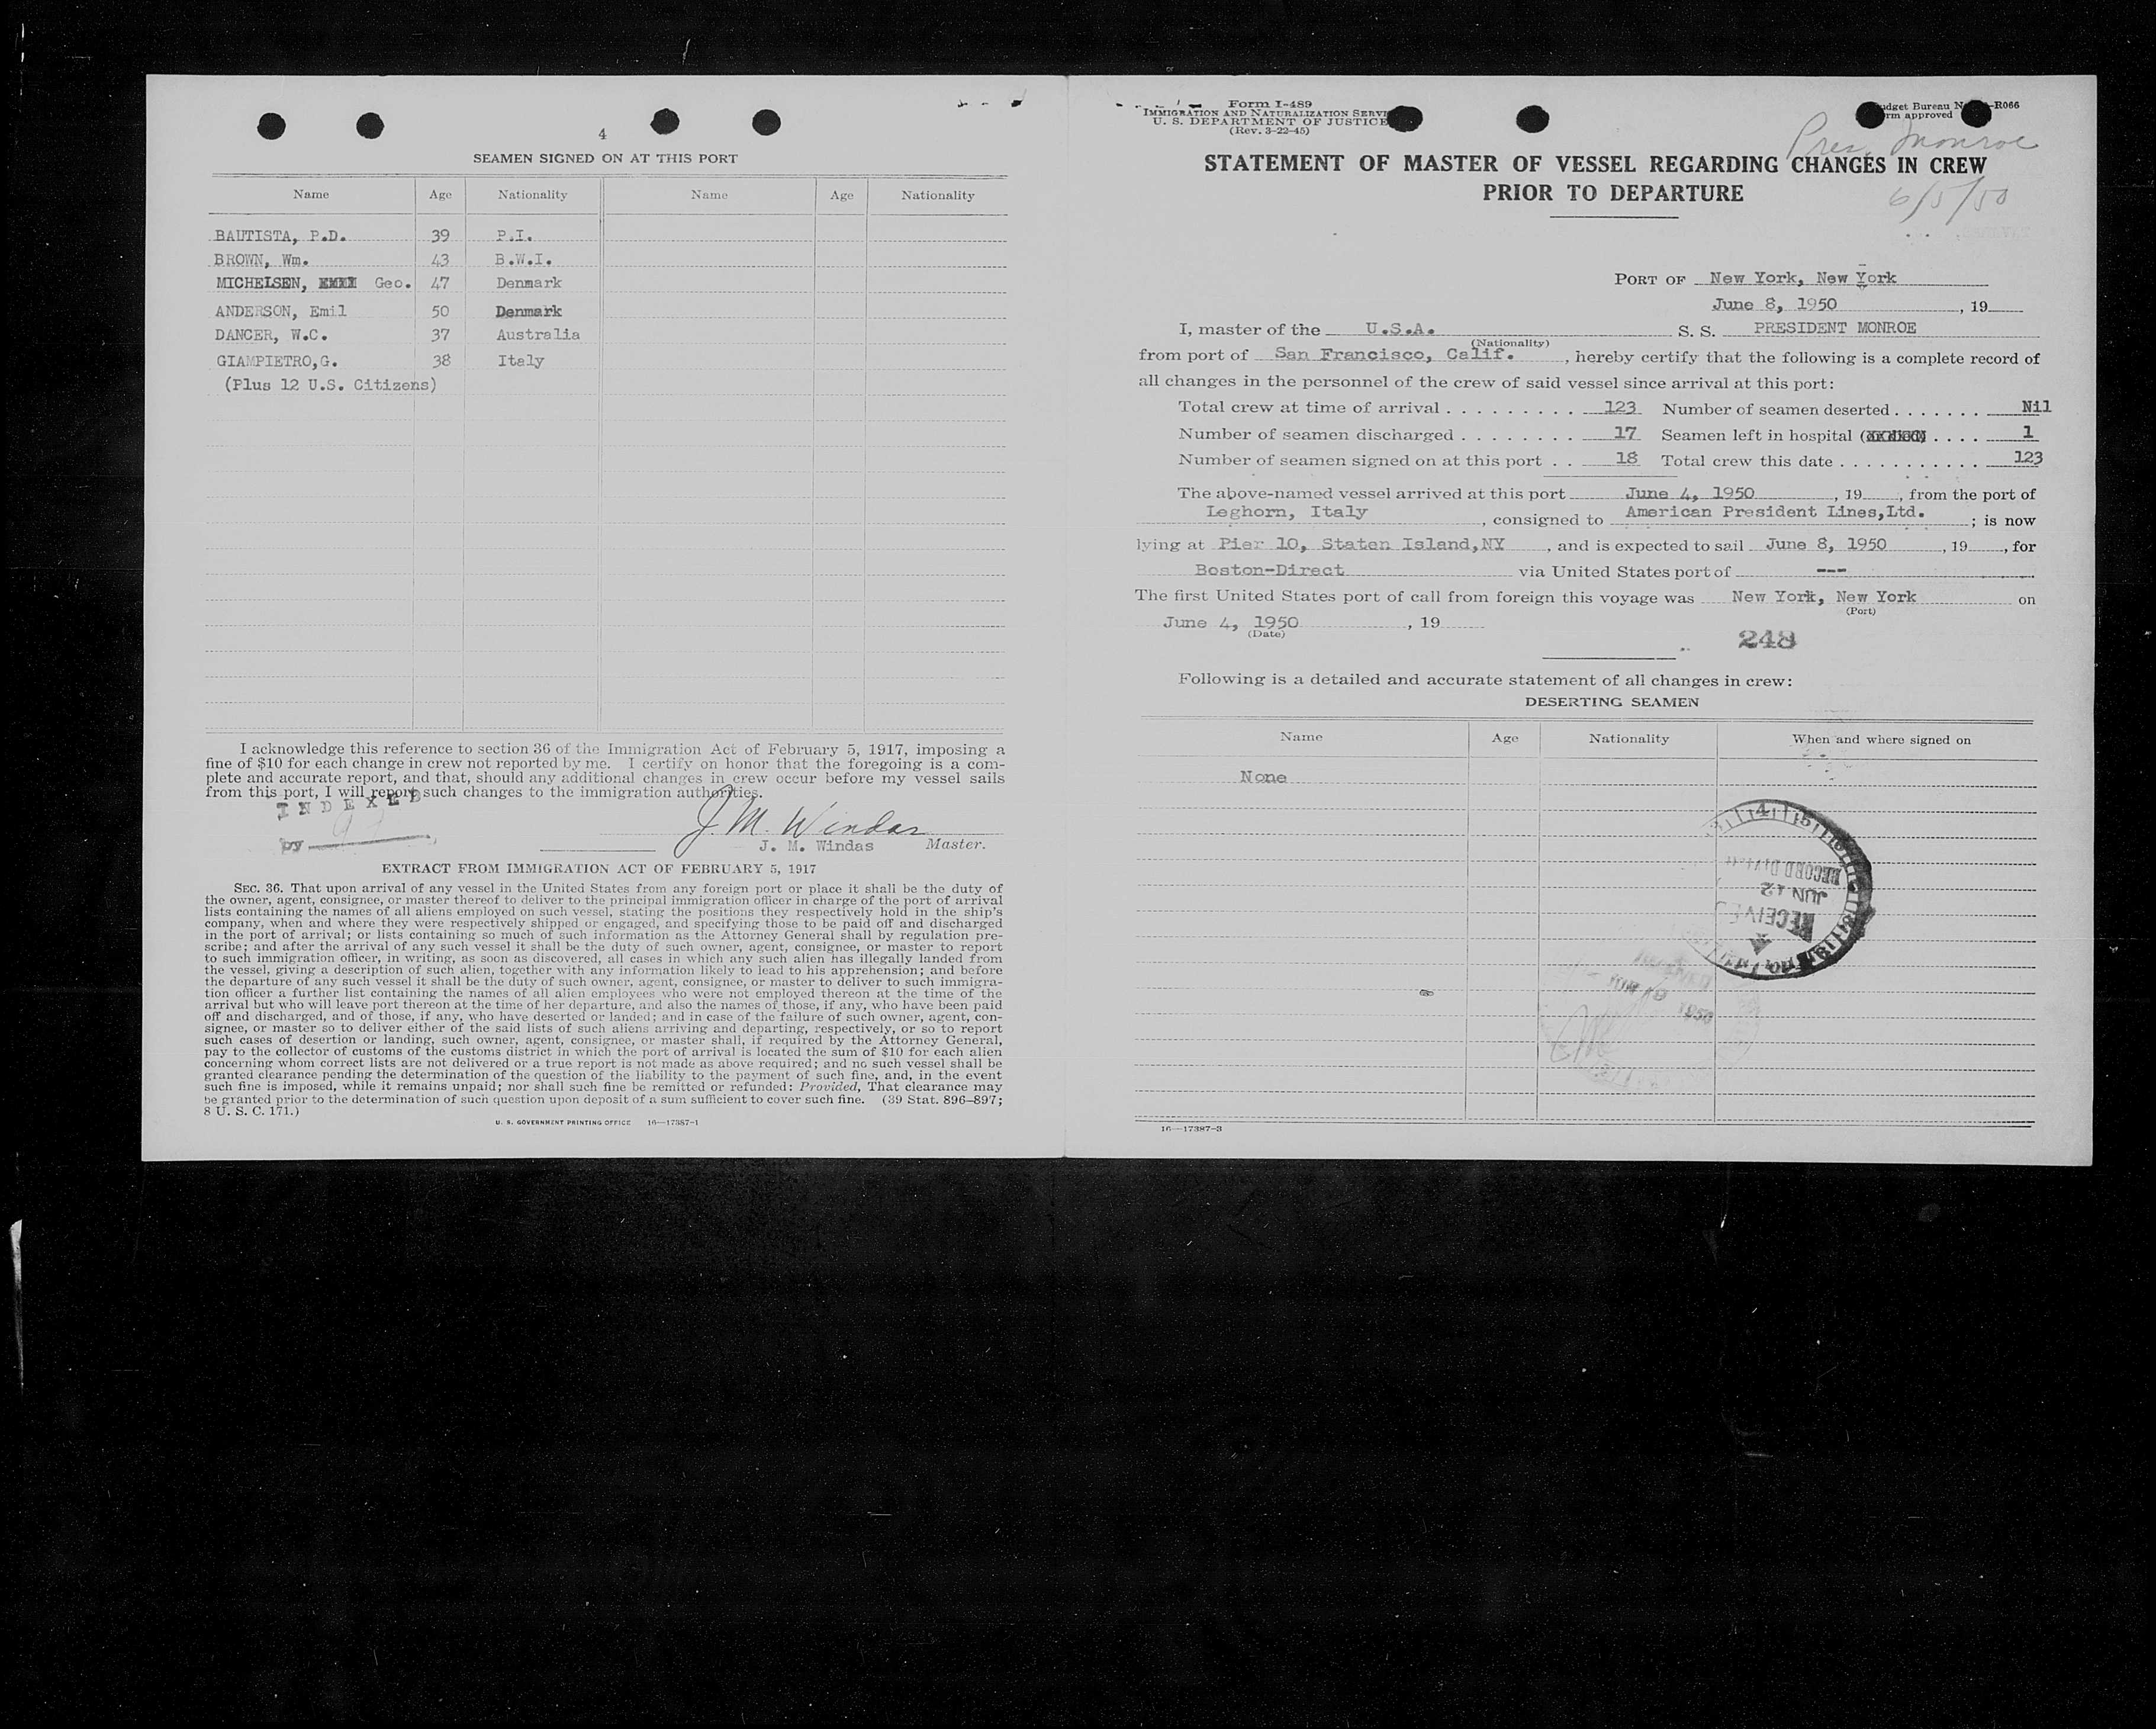 4
SEAMEN SIGNED ON AT THIS PORT
Name Age Nationality Name Age Nationality
BAUTISTA, P.D. 39 P.I.
BROWN, Wm. 43 B.W.I.
MICHELSEN, Geo. 47 Denmark
ANDERSON, Emil 50 Denmark
DANCER, W.C. 37 Australia
GIAMPIETRO,G. 38 Italy
(Plus 12 U.S. Citizens)
I acknowledge this reference to section 36 of the Immigration Act of February 5, 1917, imposing a
fine of $10 for each change in crew not reported by me. I certify on honor that the foregoing is a com-
plete and accurate report, and that, should any additional changes in crew occur before my vessel sails
from this port, I will report such changes to the immigration authorities.
INDEXED
by
J. M. Windas
J. M. Windas Master.
EXTRACT FROM IMMIGRATION ACT OF FEBRUARY 5, 1917
SEC. 36. That upon arrival of any vessel in the United States from any foreign port or place it shall be the duty of
the owner, agent, consignee, or master thereof to deliver to the principal immigration officer in charge of the port of arrival
lists containing the names of all aliens employed on such vessel, stating the positions they respectively hold in the ship's
company, when and where they were respectively shipped or engaged, and specifying those to be paid off and discharged
in the port of arrival; or lists containing so much of such information as the Attorney General shall by regulation pre-
scribe; and after the arrival of any such vessel it shall be the duty of such owner, agent, consignee, or master to report
to such immigration officer, in writing, as soon as discovered, all cases in which any such alien has illegally landed from
the vessel, giving a description of such alien, together with any information likely to lead to his apprehension; and before
the departure of any such vessel it shall be the duty of such owner, agent, consignee, or master to deliver to such immigra-
tion officer a further list containing the names of all alien employees who were not employed thereon at the time of the
arrival but who will leave port thereon at the time of her departure, and also the names of those, if any, who have been paid
off and discharged, and of those, if any, who have deserted or landed; and in case of the failure of such owner, agent, con-
signee, or master so to deliver either of the said lists of such aliens arriving and departing, respectively, or so to report
such cases of desertion or landing, such owner, agent, consignee, or master shall, if required by the Attorney General,
pay to the collector of customs of the customs district in which the port of arrival is located the sum of $10 for each alien
concerning whom correct lists are not delivered or a true report is not made as above required; and no such vessel shall be
granted clearance pending the determination of the question of the liability to the payment of such fine, and, in the event
such fine is imposed, while it remains unpaid; nor shall such fine be remitted or refunded: Provided, That clearance may
be granted prior to the determination of such question upon deposit of a sum sufficient to cover such fine. (39 Stat. 896–897;
8 U. S. C. 171.)
U. S. GOVERNMENT PRINTING OFFICE 16—17387-1
Form I-489
IMMIGRATION AND NATURALIZATION SERVI
U. S. DEPARTMENT OF JUSTICE
(Rev. 3-22-45)
udget Bureau N -R066
rm approved
Pres. Monroe
STATEMENT OF MASTER OF VESSEL REGARDING CHANGES IN CREW
PRIOR TO DEPARTURE
6/5/50
PORT OF New York, New York
June 8, 1950, 19
I, master of the U.S.A. S. S. PRESIDENT MONROE
(Nationality)
from port of San Francisco, Calif., hereby certify that the following is a complete record of
all changes in the personnel of the crew of said vessel since arrival at this port:
Total crew at time of arrival . . . . . . . . . 123 Number of seamen deserted . . . . . . . Nil
Number of seamen discharged . . . . . . . . 17 Seamen left in hospital ( . . . . 1
Number of seamen signed on at this port . . 18 Total crew this date . . . . . . . . . . . 123
The above-named vessel arrived at this port June 4, 1950, 19, from the port of
Leghorn, Italy, consigned to American President Lines,Ltd.; is now
lying at Pier 10, Staten Island,NY, and is expected to sail June 8, 1950, 19, for
Boston-Direct via United States port of ---
The first United States port of call from foreign this voyage was New York, New York on
(Port)
June 4, 1950, 19
(Date)
248
Following is a detailed and accurate statement of all changes in crew:
DESERTING SEAMEN
Name Age Nationality When and where signed on
None
RECORD
JUN 12
RECEIVE
1950
16—17387-3